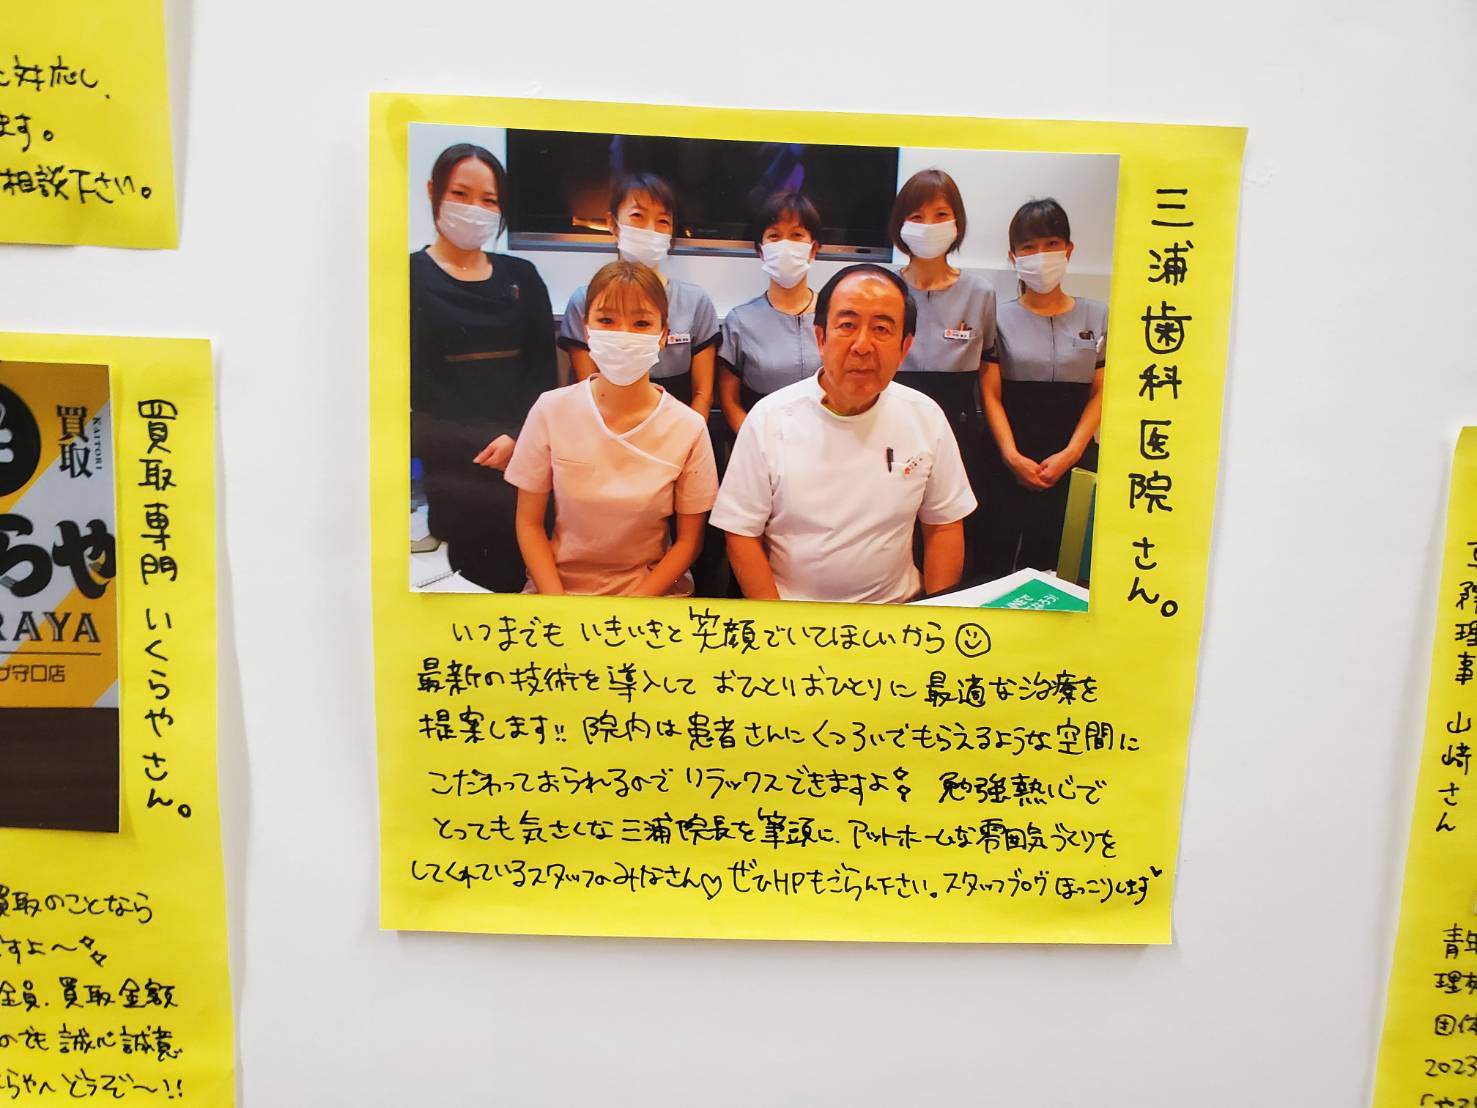 対応し、
ます。
相談下さい。
買取
KAITORI
らや
RAYA
守口店
買取専門 いくらやさん。
買取のことなら
ですよ〜
全員、買取金額
のでも 誠心誠意
らやへ どうぞ〜!!
三浦歯科医院さん。
いつまでも いきいきと 笑顔でいてほしいから
最新の技術を導入して おひとりおひとりに 最適な治療を
提案します!! 院内は患者さんにくつろいでもらえるような空間に
こだわっておられるので リラックスできますよ 勉強熱心で
とっても気さくな三浦院長を筆頭に、アットホームな雰囲気づくりを
してくれているスタッフのみなさん♡ ぜひHPもごらん下さい。スタッフブログ ほっこりします
務理事 山崎さん
青年
理
団体
2023